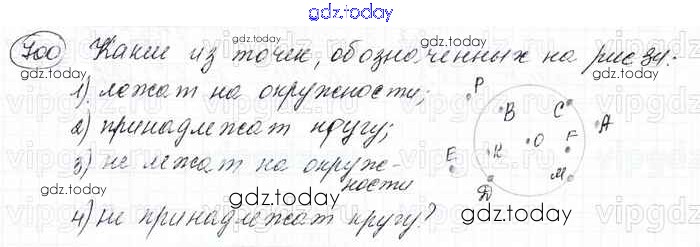 gdz.today
700 Какие из точек, обозначенных на рис 34:
1) лежат на окружности;
2) принадлежат кругу;
3) не лежат на окруж-
ности
4) не принадлежат кругу?
P
B
C
A
O
F
E
K
D
M
gdz.today
gdz.today
gdz.today
gdz.today